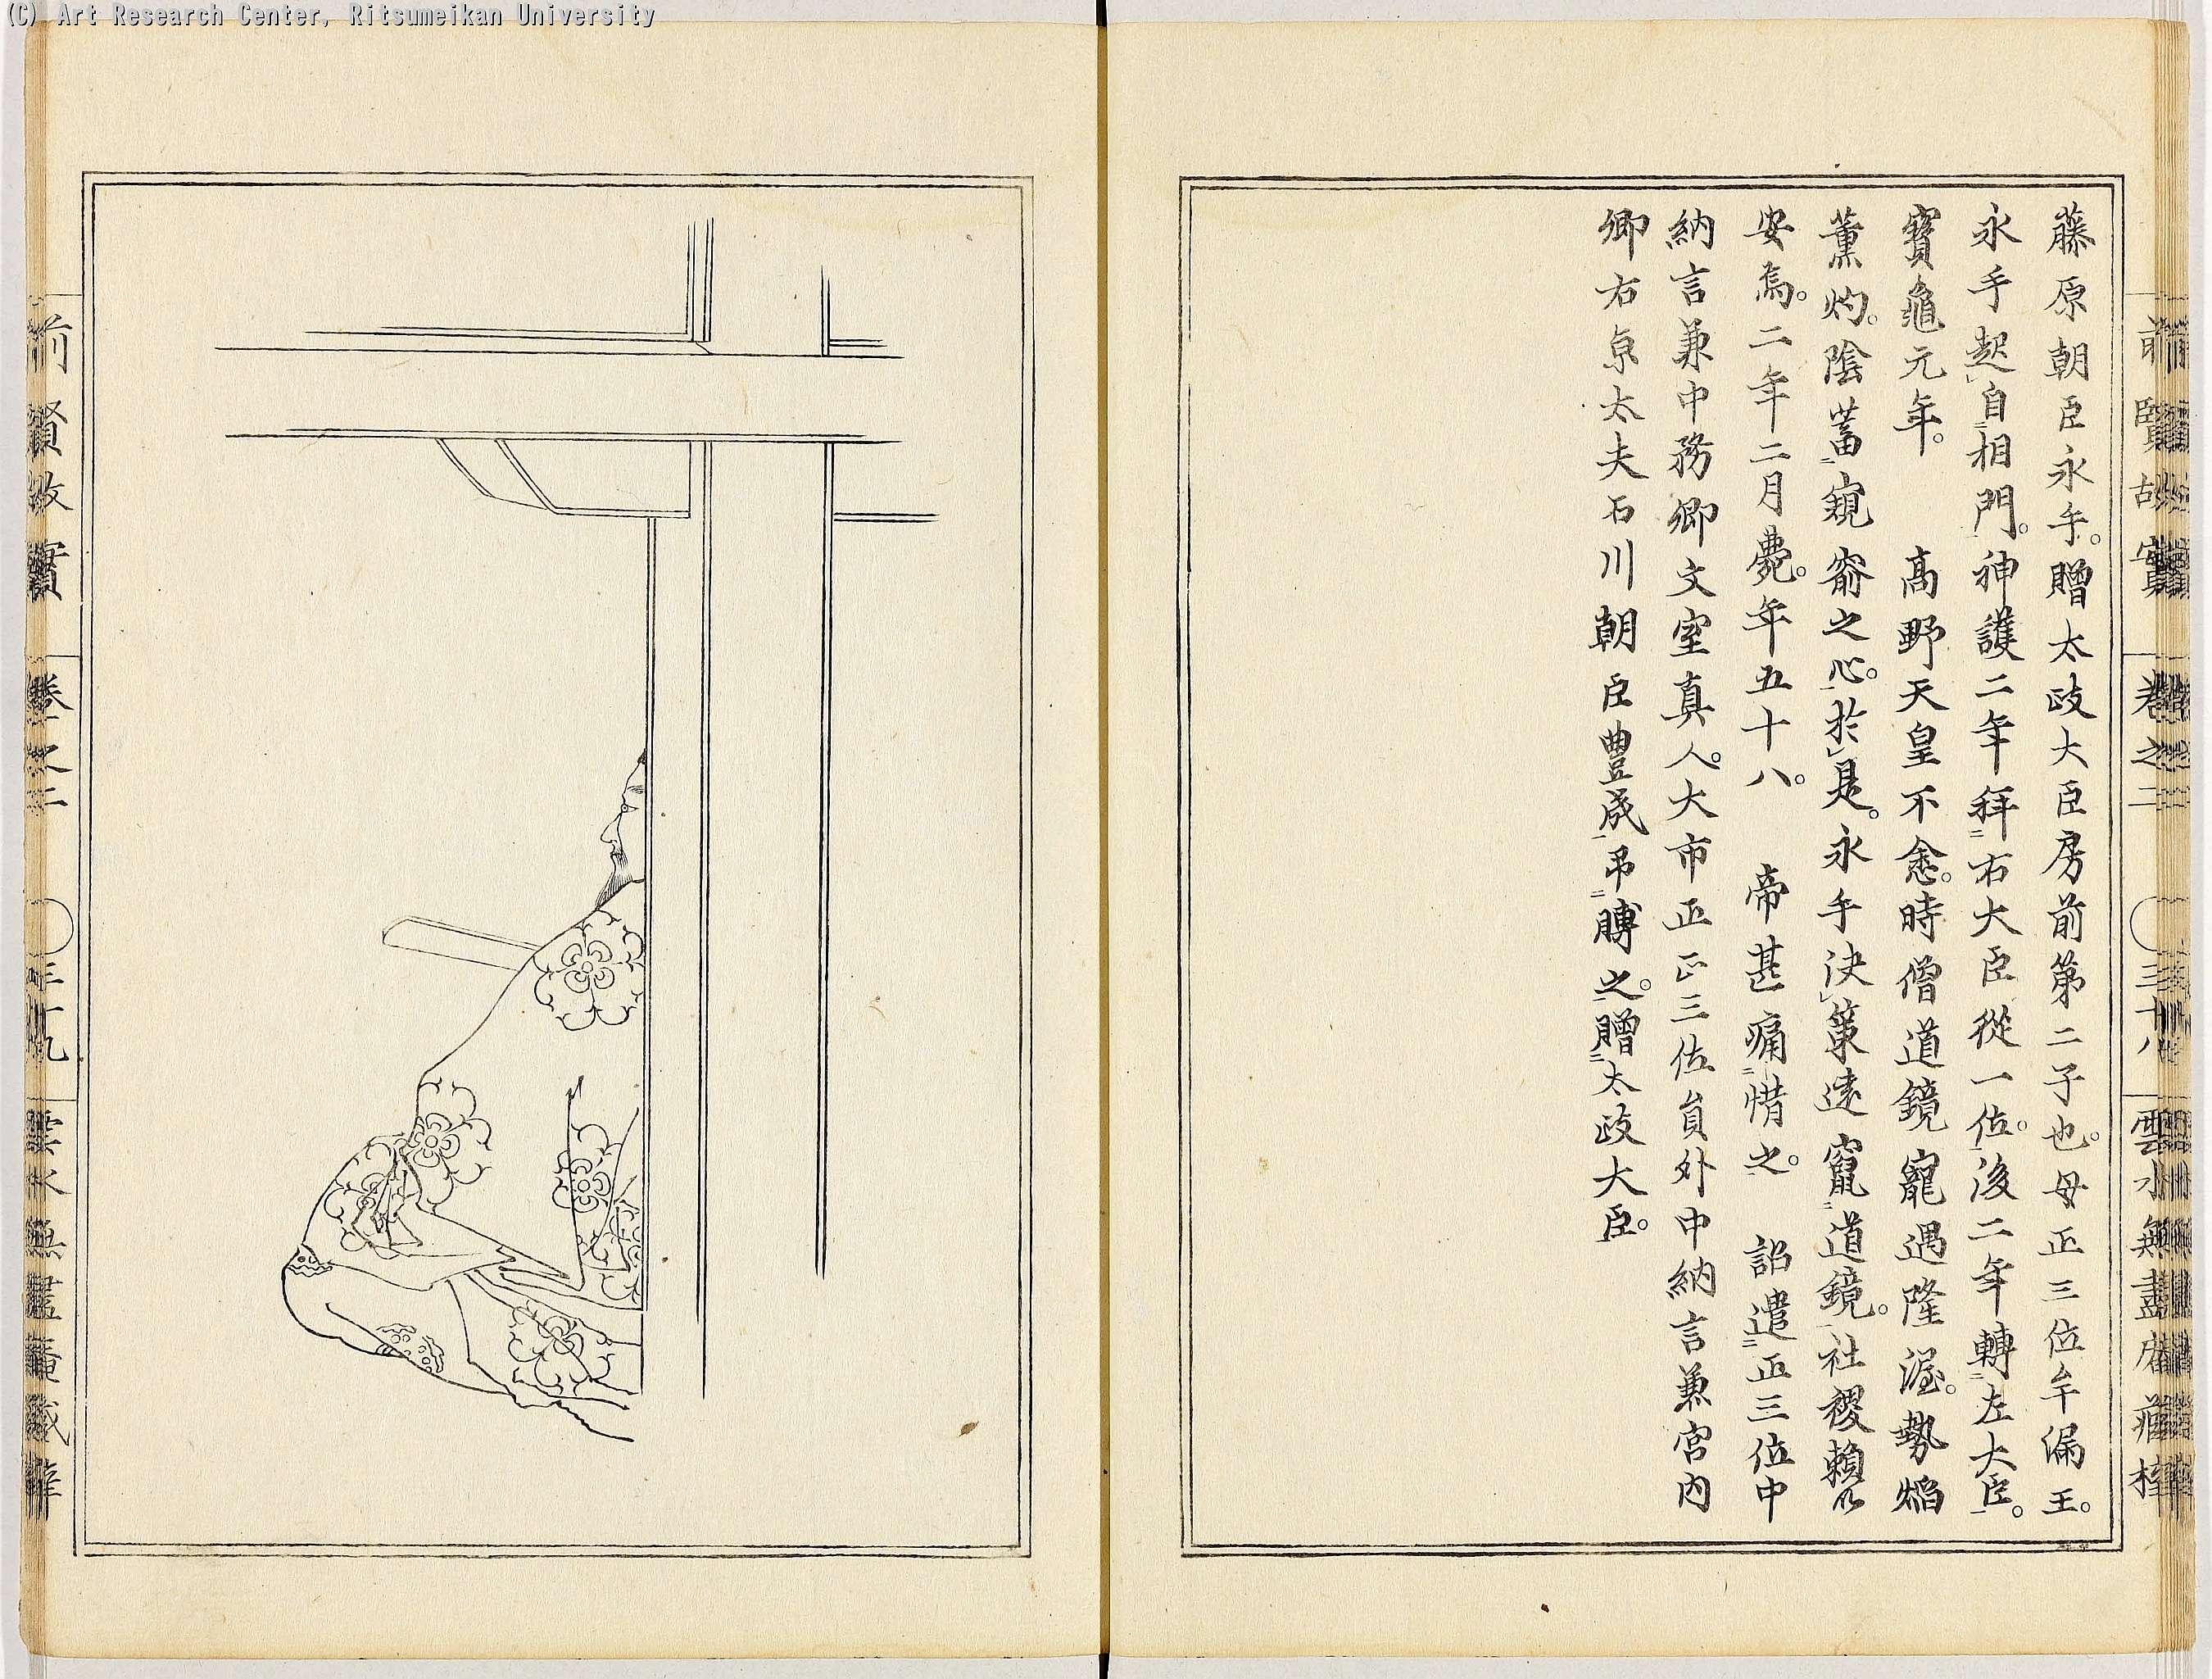 (C) Art Research Center, Ritsumeikan University
前賢故實 卷之二 三十八 雲水無盡庵藏梓
藤原朝臣永手。贈太政大臣房前第二子也。母正三位牟漏王。
永手起自相門。神護二年拜右大臣從一位。後二年轉左大臣。
寶龜元年。 高野天皇不悆。時僧道鏡寵遇隆渥。勢焰
薰灼。陰蓄窺窬之心。於是。永手決策遠竄道鏡。社稷賴以
安焉。二年二月薨。年五十八。 帝甚痛惜之。 詔遣正三位中
納言兼中務卿文室真人。大市正正三位員外中納言兼宮内
卿右京太夫石川朝臣豐成弔賻之。贈太政大臣。
前賢故實 卷之二 三十九 雲水無盡庵藏梓